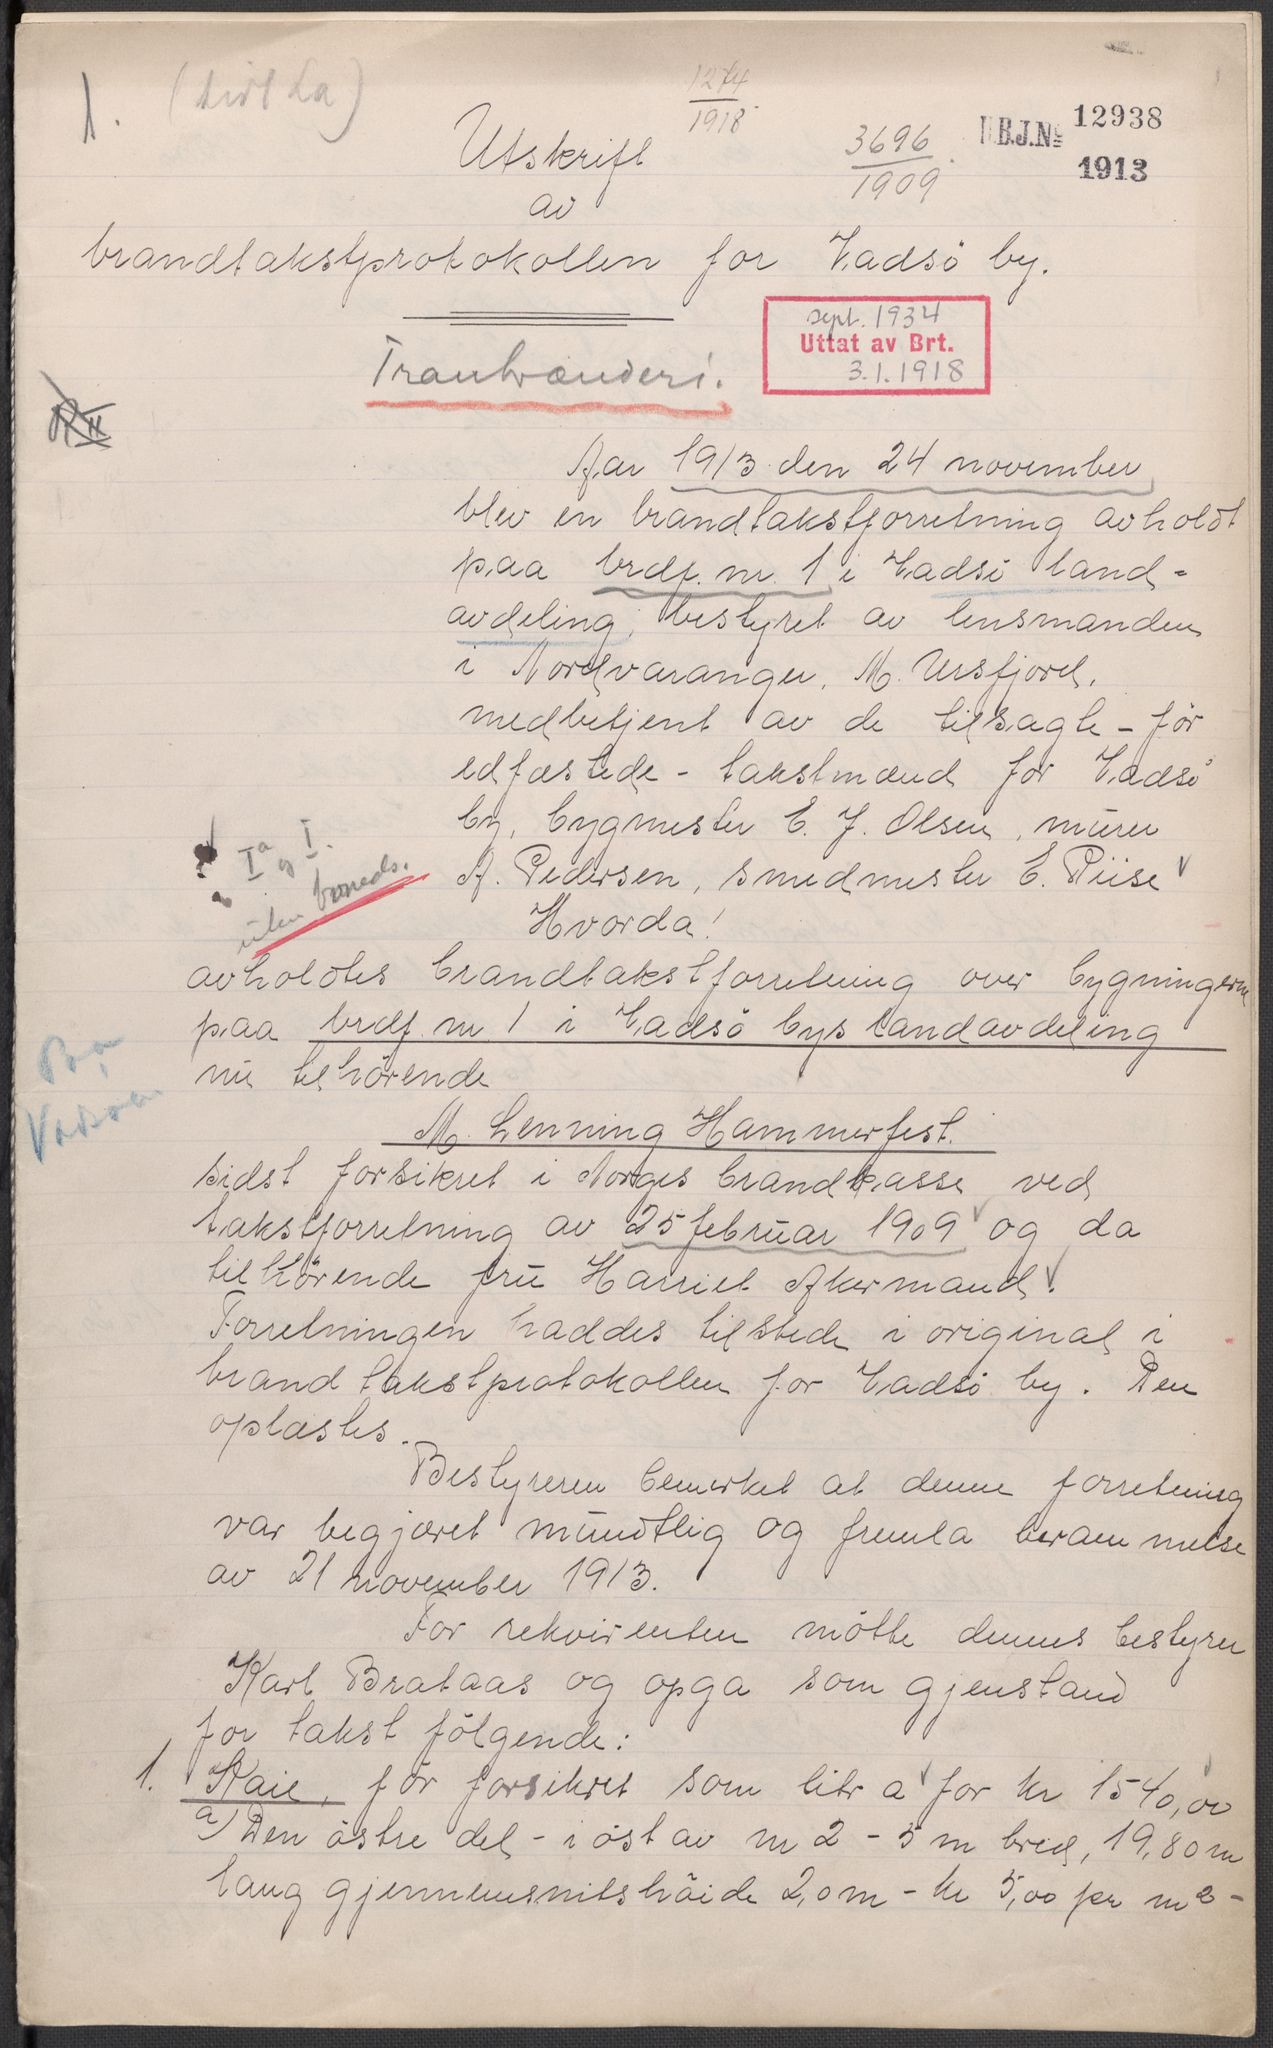 1.
1274
1918
3696
1909
B.J.No 12938
1913
Utskrift
av
brandtakstprotokollen for Vadsö by.
sept. 1934
Uttat av Brt.
3.1.1918
Tranbrænderi.
Aar 1913 den 24 november
blev en brandtakstforretning avholdt
paa brdf. nr. 1 i Vadsö land-
avdeling, bestyret av lensmanden
i Nordvaranger, M. Ursfjord,
medbetjent av de tilsagte - før
edfæstede - takstmænd for Vadsö
by, bygmester E. J. Olsen, murer
A. Pedersen, smedmester E. Riise
Ia og I.
uten
Hvorda!
avholdtes brandtakstforretning over bygningerne
paa brdf. nr 1 i Vadsö bys landavdeling
nu tilhörende
M. Lenning Hammerfest.
sidst forsikret i Norges brandkasse ved
takstforretning av 25 februar 1909 og da
tilhörende fru Harriet Akermand.
Forretningen haddes tilstede i original i
brandtakstprotokollen for Vadsö by. Den
oplæstes.
Bestyreren bemerket at denne forretning
var begjæret mundtlig og fremla berammelse
av 21 november 1913.
For rekvirenten mötte dennes bestyrer
Karl Brataas og opga som gjenstand
for takst fölgende:
1. Kaie, för forsikret som litr a for kr 1540,00
a) Den östre del - i öst av nr 2 - 5 m bred, 19,80 m
lang gjennemsnitshöide 2,0 m - kr 5,00 pr m2 -